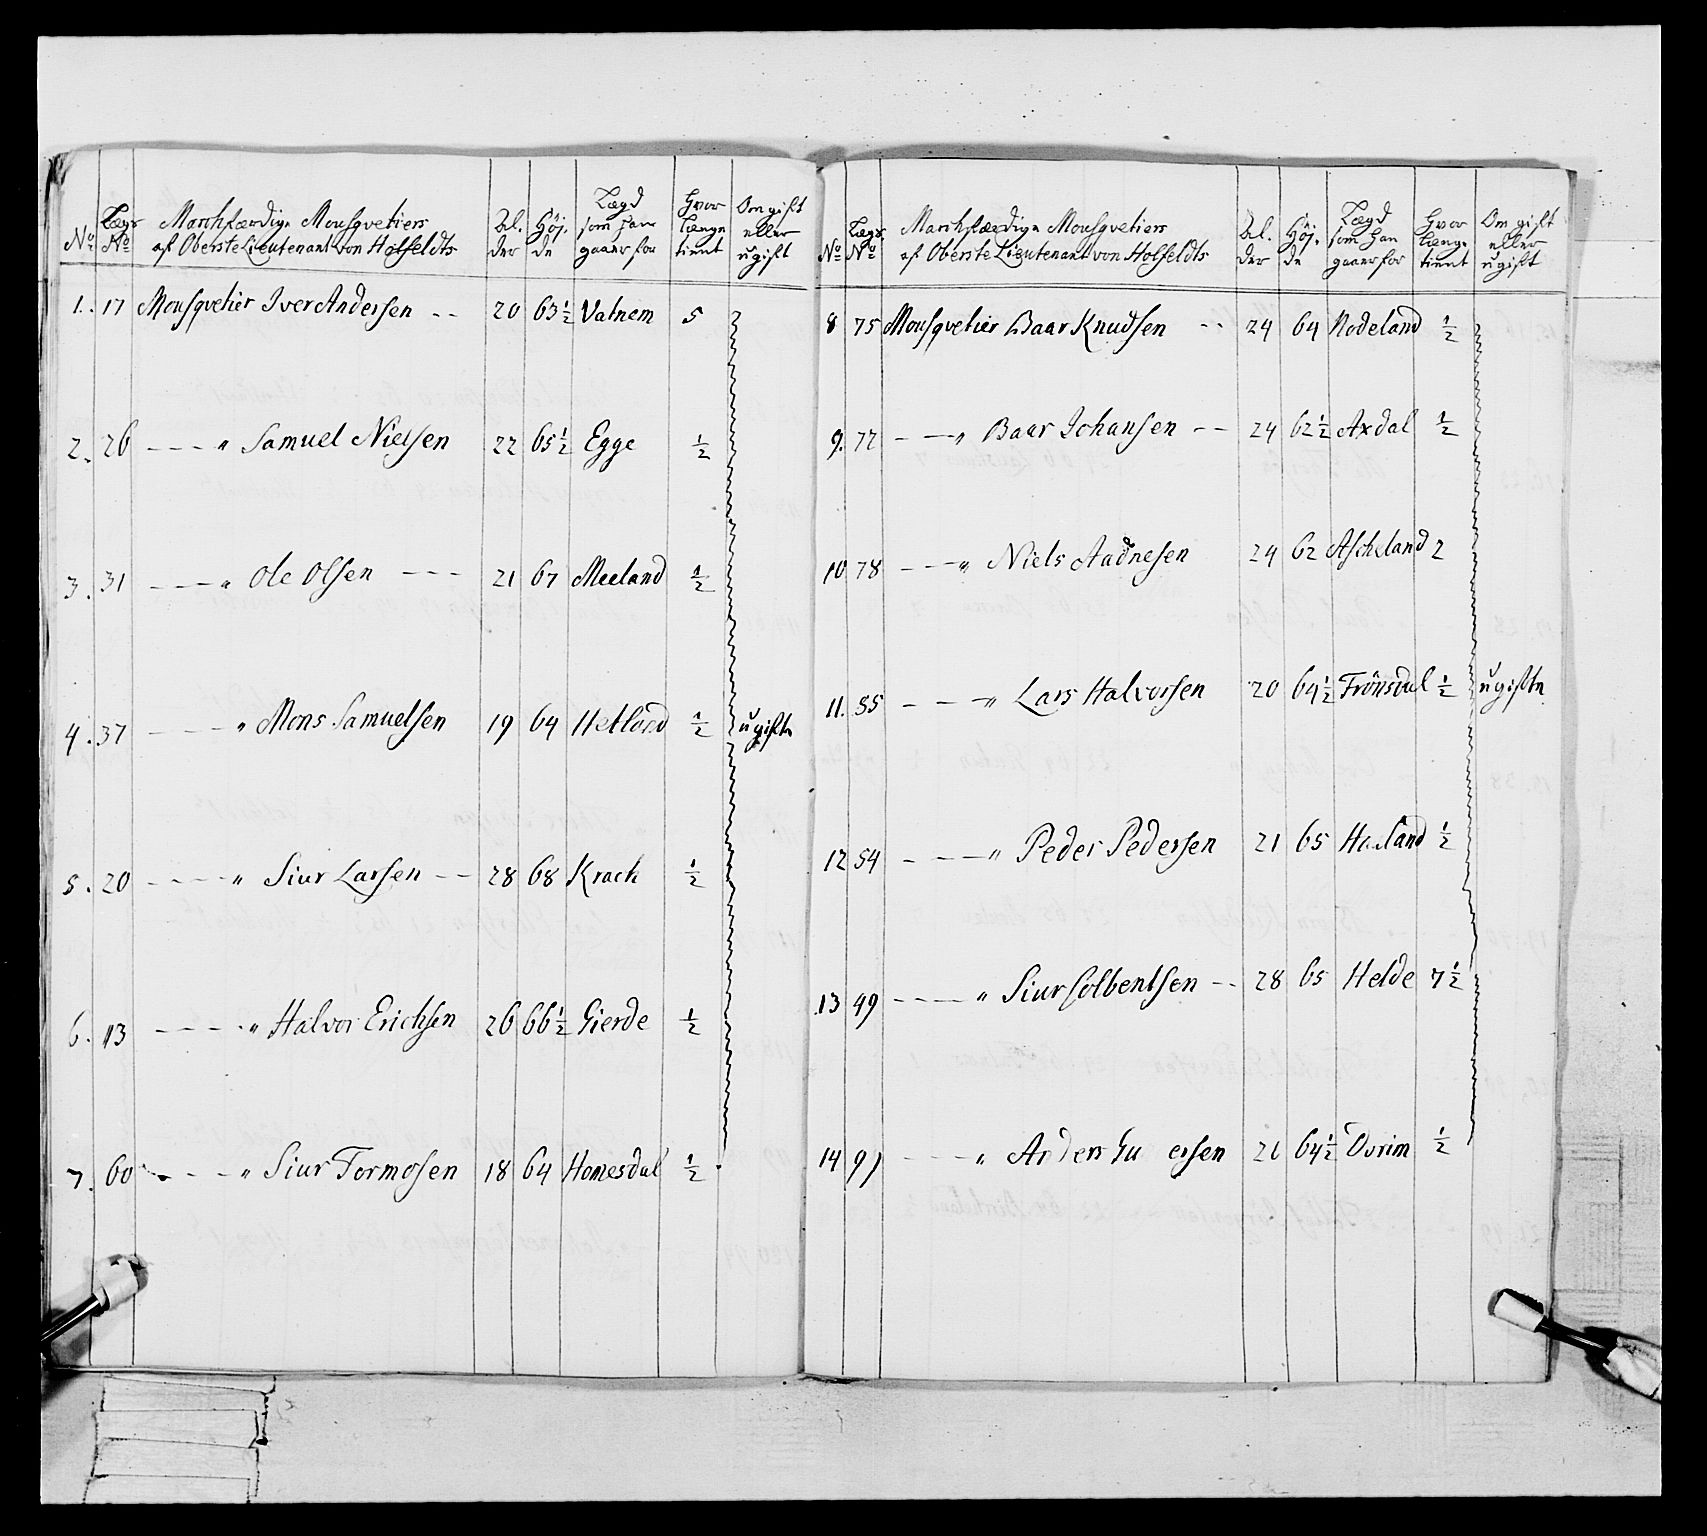 No. Lægs No. Marchfærdige Mousqvetiers af Oberste Lieutenant von Holfeldts Al.der Höj.de Lægd som han gaaer for Hvor længe tient Om gift eller ugift
1. 17 Mousqvetier Iver Andersen -- 20 63½ Vatnem 5
2. 26 ---- " Samuel Nielsen 22 65½ Egge ½
3. 31 ---- " Ole Olsen --- 21 67 Meeland ½
4. 37 ---- " Mons Samuelsen 19 64 Hetland ½ ugifte
5. 20 ---- " Siur Larsen -- 28 68 Krach ½
6. 113 ---- " Halvor Erichsen 26 66½ Gierde ½
7. 60 ---- " Siur Tormosen 18 64 Homesdal ½
No. Lægs No. Marchfærdige Mousqvetiers af Oberste Lieutenant von Holfeldts Al.der Höj.de Lægd som han gaaer for Hvor længe tient Om gift eller ugift
8 75 Mousqvetier Baar Knudsen -- 24 64 Rodeland ½
9. 77 --- " Baar Johansen -- 24 62½ Axdal ½
10 78 --- " Niels Aadnesen 24 62 Ascheland 2
11. 55 --- " Lars Halvorsen 20 64½ Frönsdal ½ ugifte
12 54 --- " Peder Pedersen 21 65 ½
13 49 ---- " Siur Colbentsen -- 28 65 Helde 7½
14 91 --- " Anders 21 64½ ½